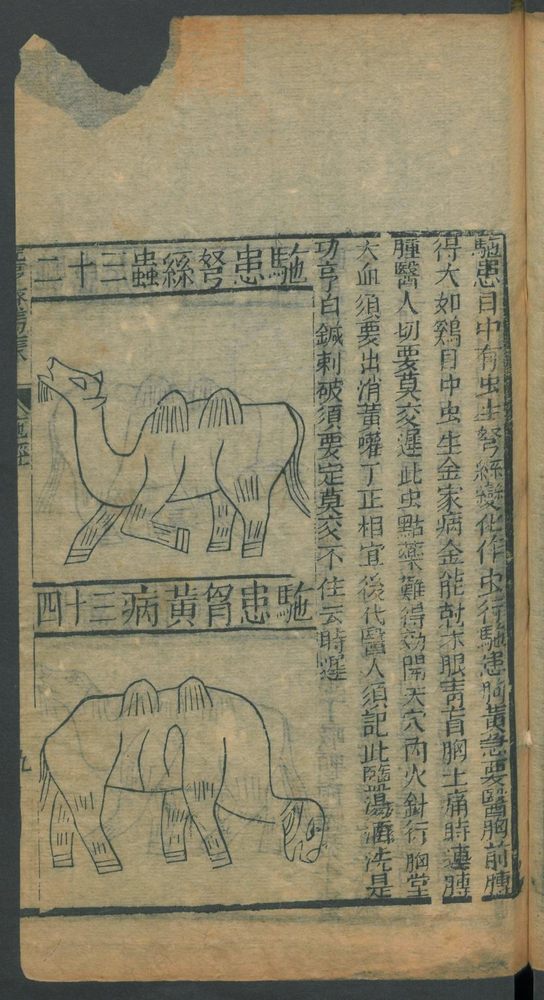 駞患目中有虫生弩絲變化作虫行駞患胸黄急要醫胸前腫
得大如鷄目中虫生金家病金能尅木眼青盲胸上痛時連腫
腫醫人切要莫交遲此虫點藥難得効開天穴內火針行胸堂
大血須要出消黄嚾丁正相宜後代醫人須記此鹽湯酒洗是
功亨白鍼刺破須要定莫交不住云時遲
駞患弩絲蟲三十二
駞患胷黄病三十四
九